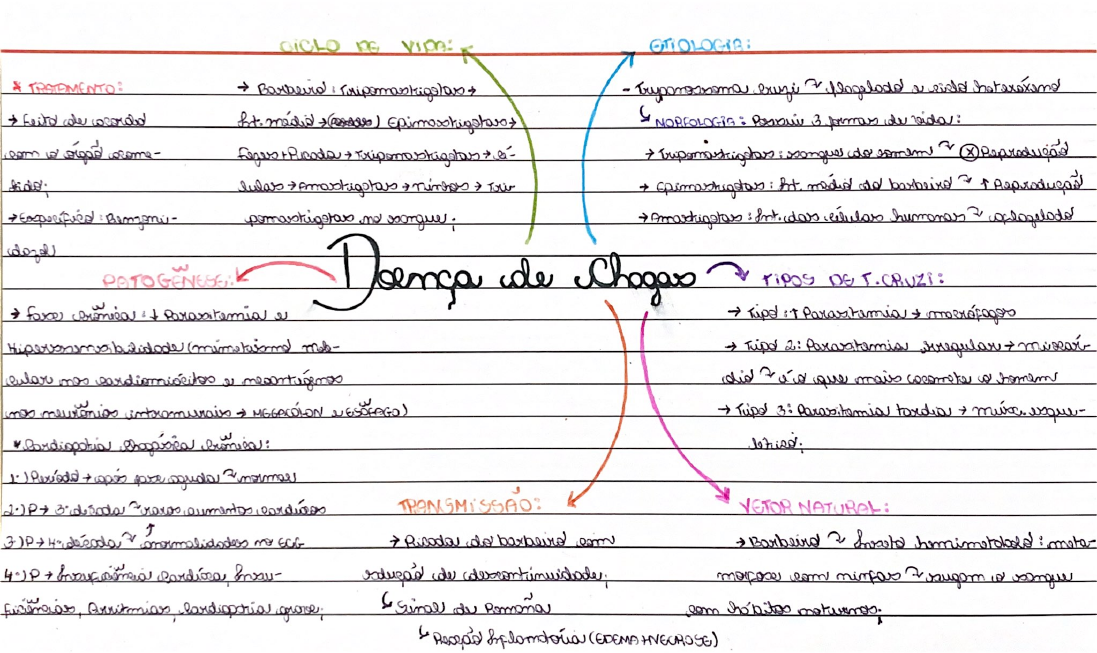 CICLO DE VIDA:
→ Barbeiro: Tripomastigotas →
Int. médio → Epimastigotas →
Fezes + Picada → Tripomastigotas → cé-
lulas → Amastigotas → ninhos → Tri-
pomastigotas no sangue.
ETIOLOGIA:
- Trypanossoma cruzi ~ flagelado e ciclo heteróxeno
↳ MORFOLOGIA: Possui 3 formas de vida:
→ Tripomastigotas: sangue do homem ~ ⓧ Reprodução
→ Epimastigotas: Int. médio do barbeiro ~ ↑ Reprodução
→ Amastigotas: Int. das células humanas ~ aflagelado
* TRATAMENTO:
→ Feito de acordo
com o órgão acome-
tido;
→ Específico: Benzoni-
dazol
Doença de Chagas
PATOGÊNESE:
→ Fase crônica: ↓ Parasitemia e
Hipersensibilidade (mimetismo mole-
cular nos cardiomiócitos e neoantígenos
nos neurônios intramurais → MEGACÓLON e ESÔFAGO)
* Cardiopatia chagásica crônica:
1º) Período → após fase aguda ~ normal
2º) P → 3ª década ~ raros aumentos cardíacos
3º) P → 4ª década ~ ↑ anormalidades no ECG
4º) P → Insuficiência cardíaca, Insu-
ficiências, Arritmias, cardiopatia grave;
TIPOS DE T. CRUZI:
→ Tipo 1: ↑ Parasitemia → macrófagos
→ Tipo 2: Parasitemia irregular → miocár-
dio ~ é o que mais acomete o homem
→ Tipo 3: Parasitemia tardia → músc. esque-
lético;
TRANSMISSÃO:
→ Picada do barbeiro com
solução de descontinuidade;
↳ Sinal de Romaña
↳ Reação Inflamatória (EDEMA + NECROSE)
VETOR NATURAL:
→ Barbeiro ~ Inseto hemimetabolo: meta-
morfose com ninfas ~ sugam o sangue
com hábitos noturnos;